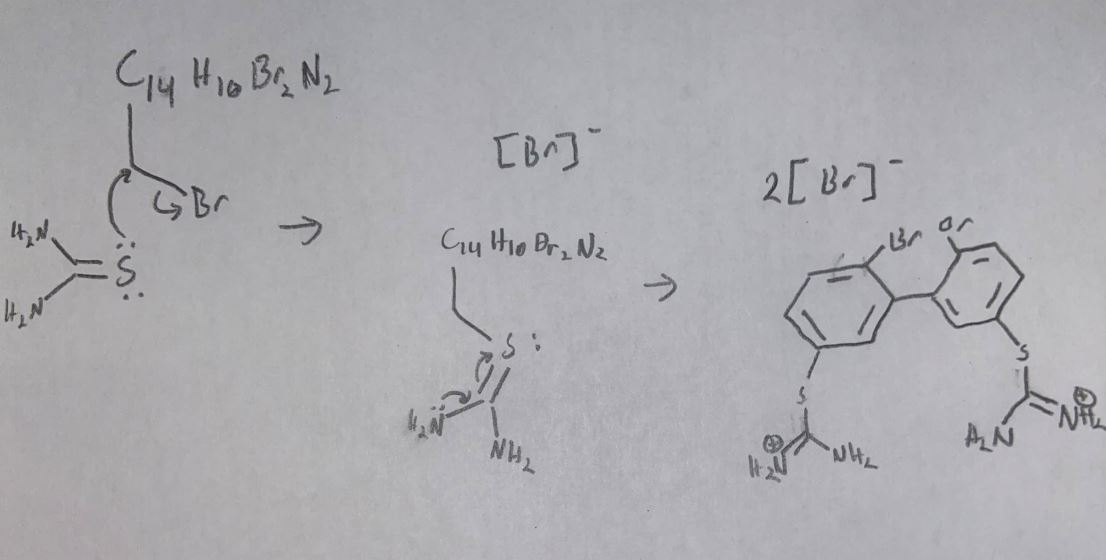 C14H10Br2N2
Br
H2N
S
H2N
→
[Br]-
C14H10Br2N2
S
H2N
NH2
→
2[Br]-
Br
Br
S
S
H2N
NH2
H2N
NH2